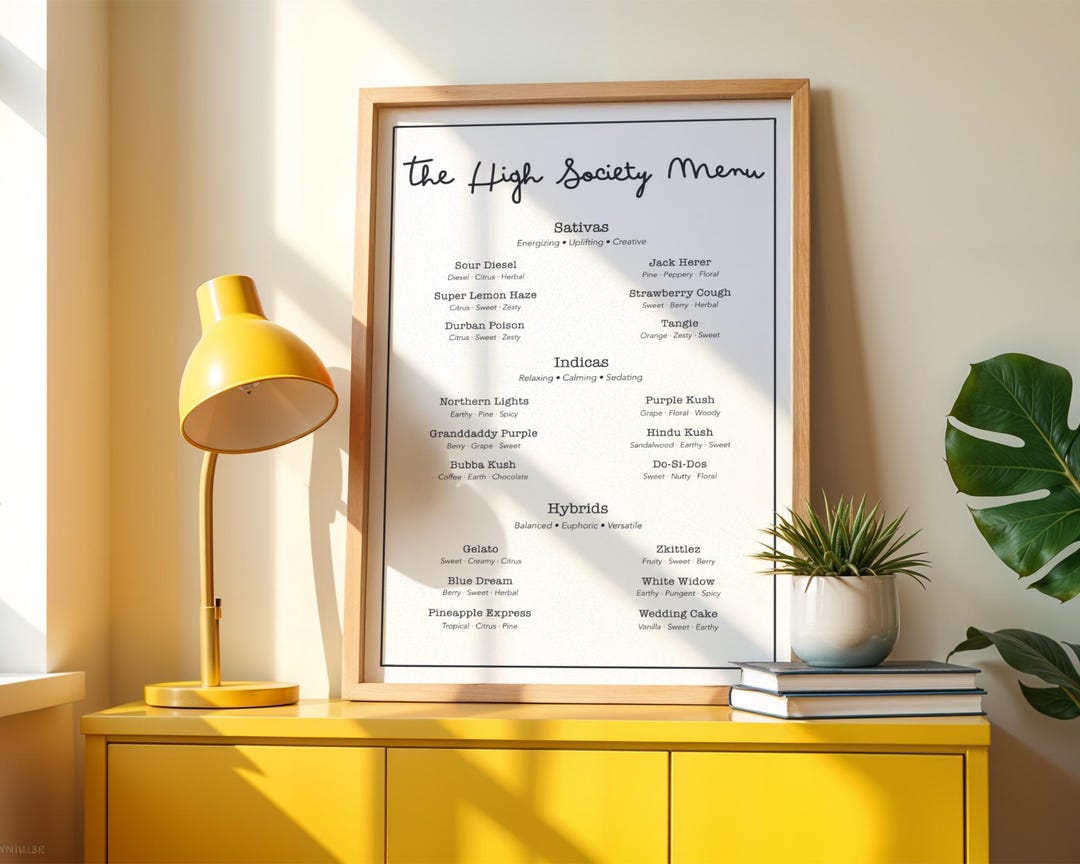 the High Society Menu
Sativas
Energizing • Uplifting • Creative
Sour Diesel
Diesel · Citrus · Herbal
Jack Herer
Pine · Peppery · Floral
Super Lemon Haze
Citrus · Sweet · Zesty
Strawberry Cough
Sweet · Berry · Herbal
Durban Poison
Citrus · Sweet · Zesty
Tangie
Orange · Zesty · Sweet
Indicas
Relaxing • Calming • Sedating
Northern Lights
Earthy · Pine · Spicy
Purple Kush
Grape · Floral · Woody
Granddaddy Purple
Berry · Grape · Sweet
Hindu Kush
Sandalwood · Earthy · Sweet
Bubba Kush
Coffee · Earth · Chocolate
Do-Si-Dos
Sweet · Nutty · Floral
Hybrids
Balanced • Euphoric • Versatile
Gelato
Sweet · Creamy · Citrus
Zkittlez
Fruity · Sweet · Berry
Blue Dream
Berry · Sweet · Herbal
White Widow
Earthy · Pungent · Spicy
Pineapple Express
Tropical · Citrus · Pine
Wedding Cake
Vanilla · Sweet · Earthy